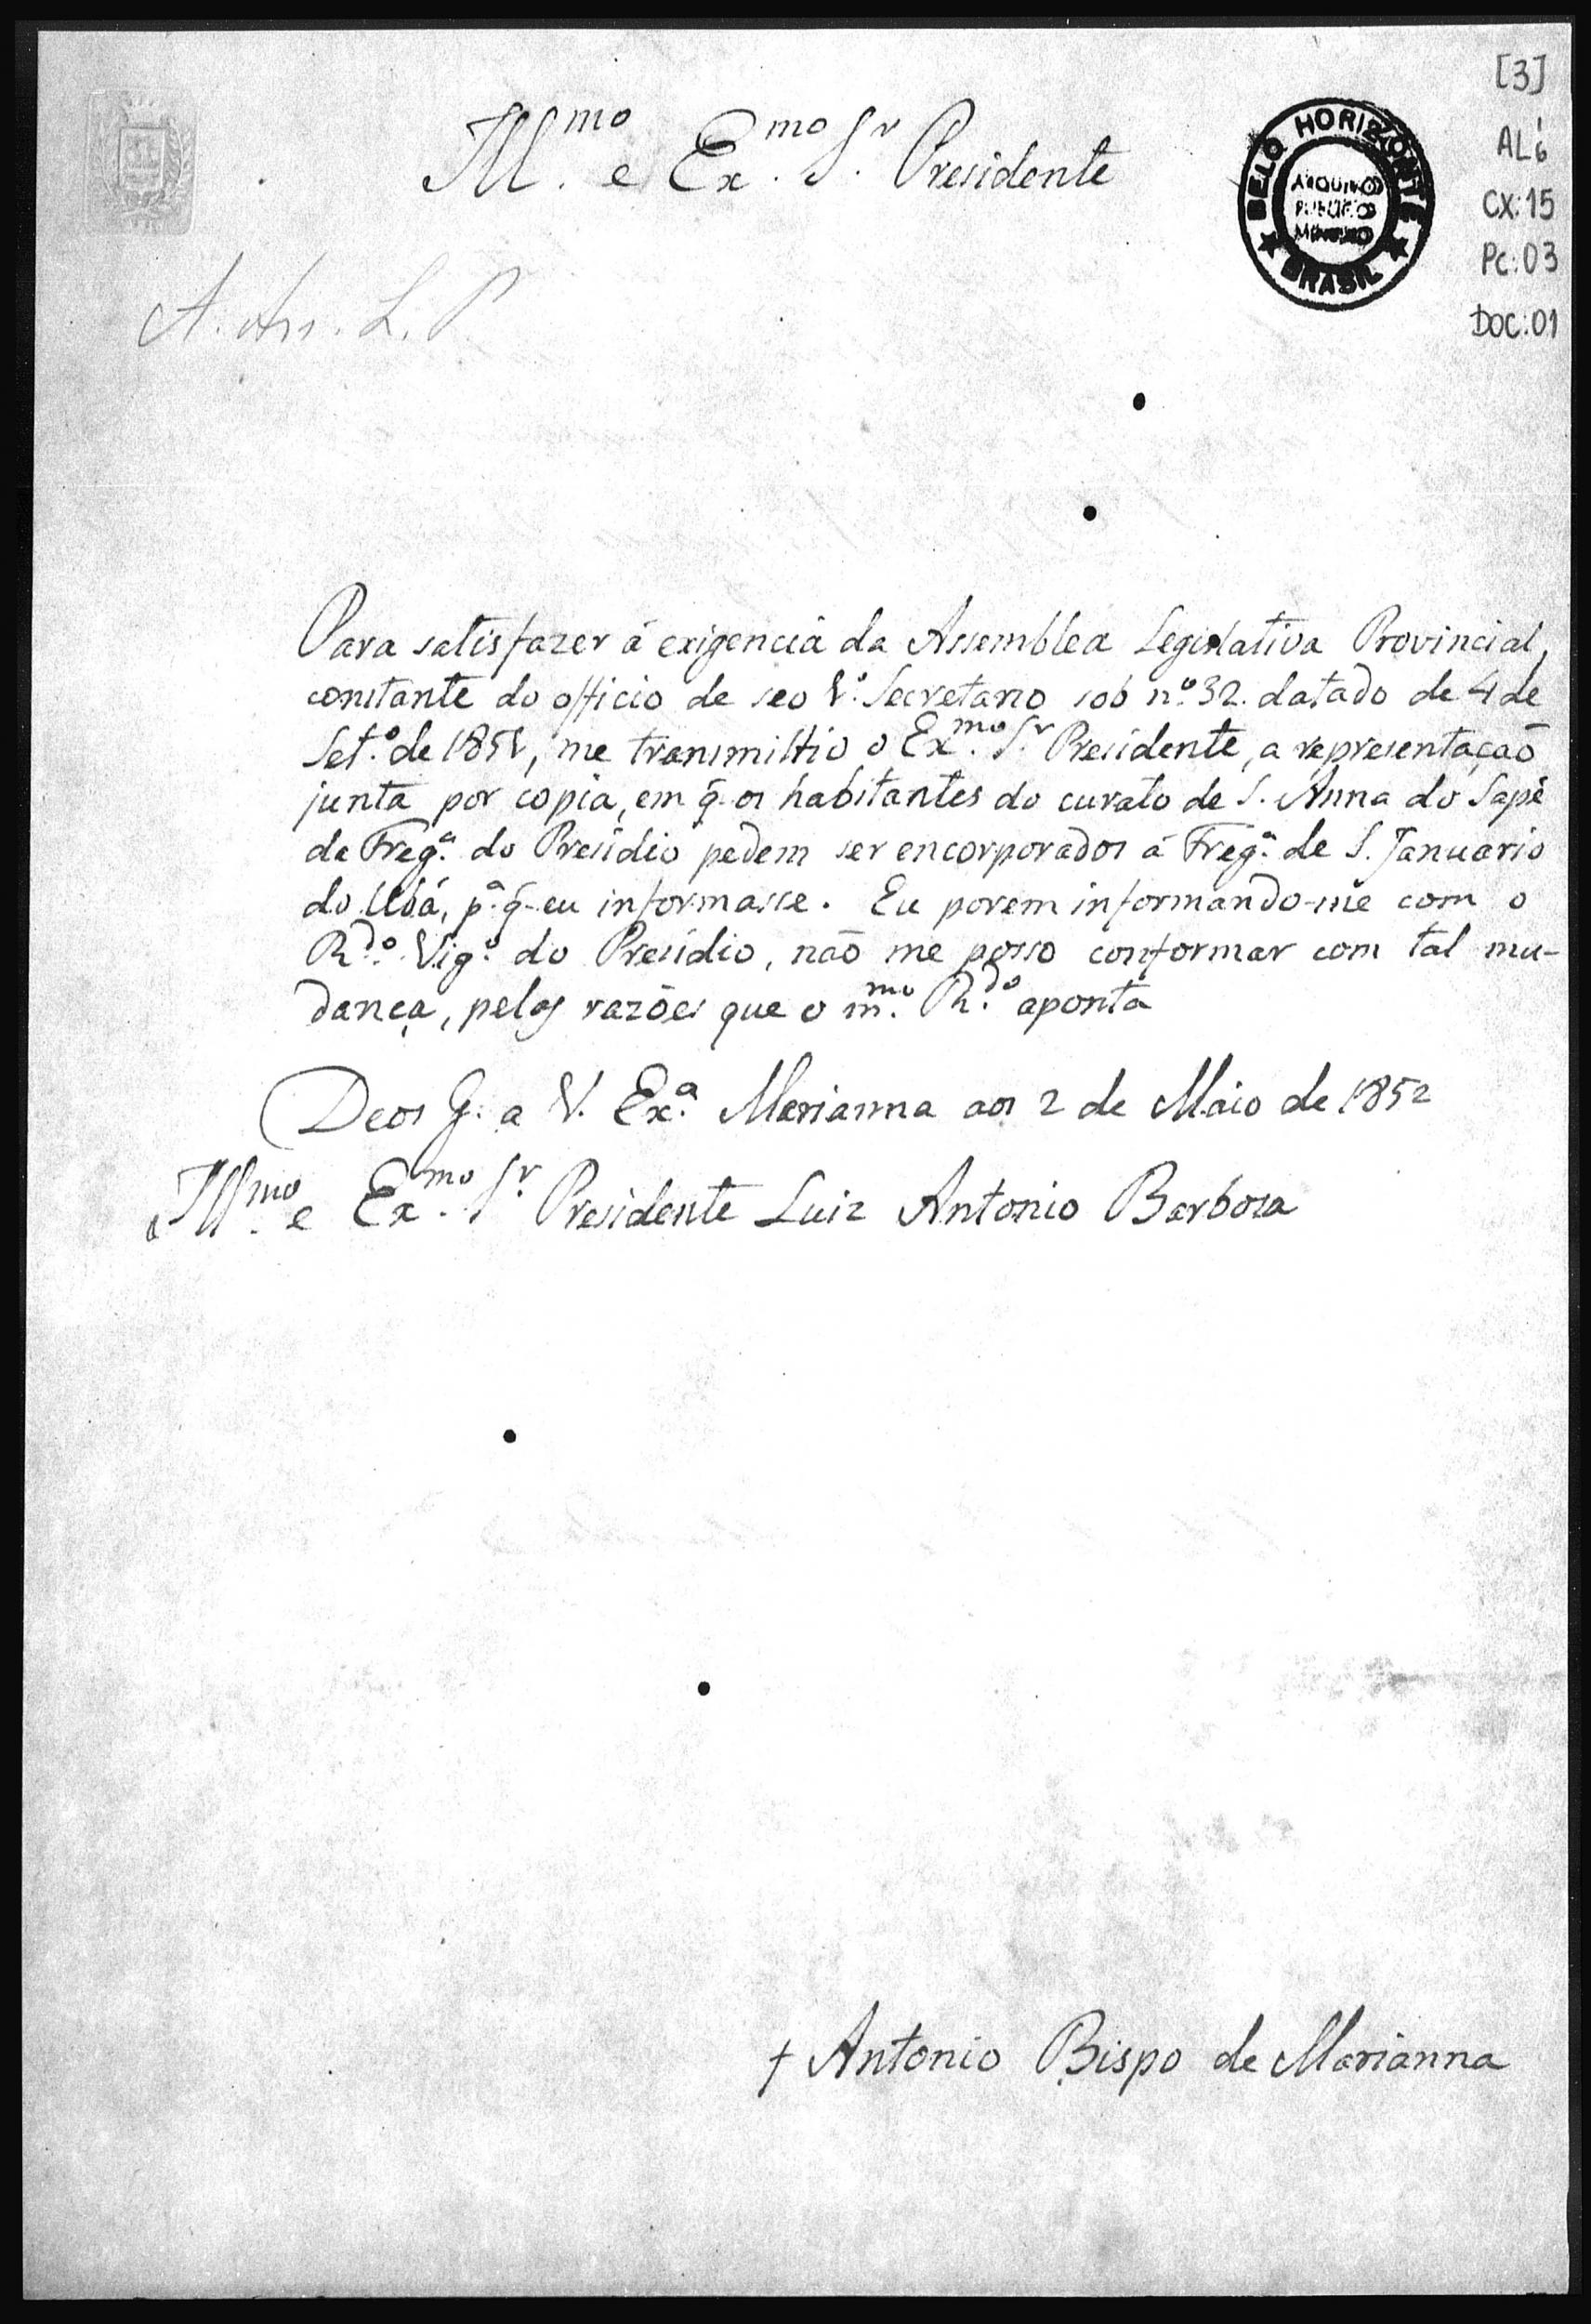 [3]
AL6
CX:15
Pc:03
DOC:01
BELO HORIZONTE
ARQUIVO
PUBLICO
MINEIRO
BRASIL
Illmo e Exmo Sr Presidente
A. L. P.
Para satisfazer á exigencia da Assemblea Legislativa Provincial,
constante do officio de seo 1º Secretario sob nº 32. datado de 4 de
Set.º de 1851, me transmittio o Exmo Sr Presidente, a representação
junta por copia, em q̃ os habitantes do curato de S. Anna do Sapé
da Freg.ª do Presidio pedem ser encorporados á Freg.ª de S. Januario
do Ubá, p.ª q̃ eu informasse. Eu porem informando-me com o
R.do Vig.º do Presidio, não me posso conformar com tal mu-
dança, pelas razões que o m.mo R.do aponta
Deos G. a V. Ex.ª Marianna aos 2 de Maio de 1852
Illmo e Exmo Sr Presidente Luiz Antonio Barboza
† Antonio Bispo de Marianna